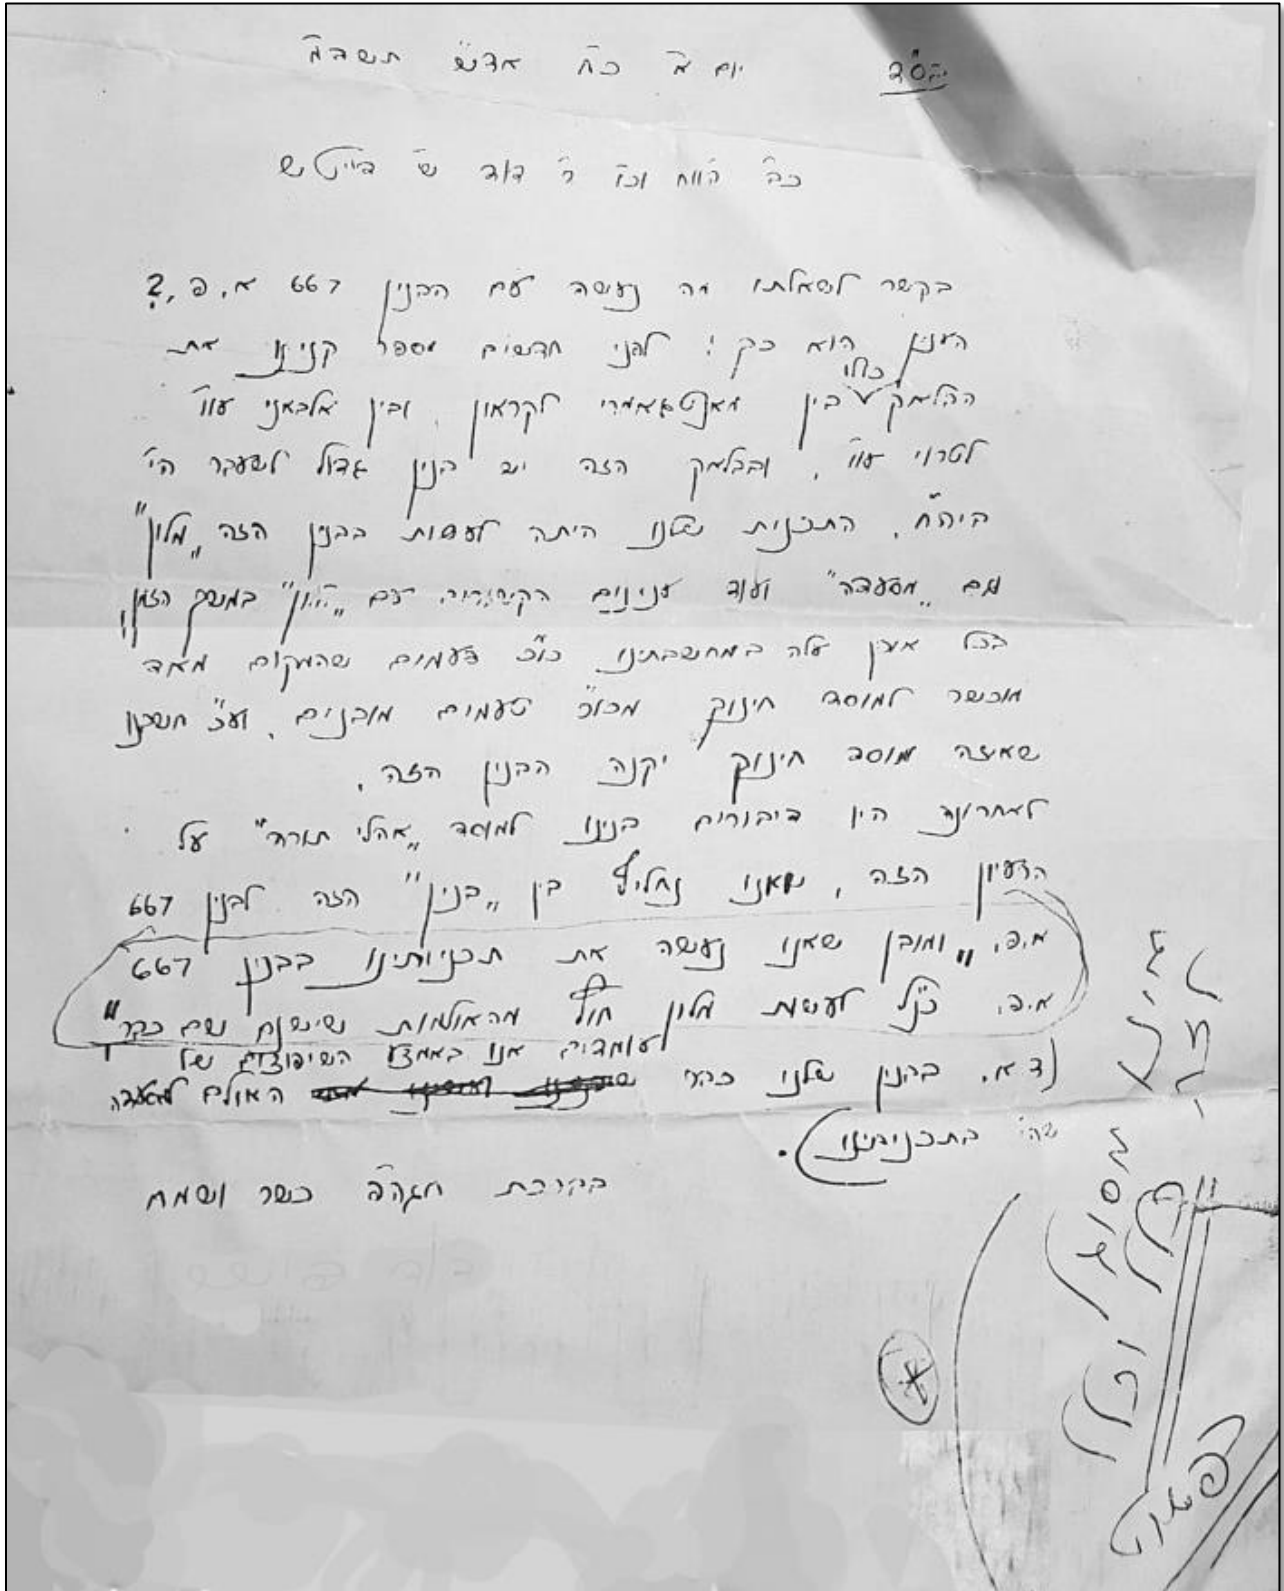 בס"ד
יום א' כ"ח אד"ש תשד"מ
כב' הוו"ח וכו' ר' דוד ש' דייטש
בקשר לשאלתו מה נעשה עם הבנין 667 א. פ.?
הענין הוא כך: לפני חדשים מספר קנינו את
הבלאק כולו בין מאנטגאמרי לקראון ובין אלבאני עוו'
לטרוי עוו', ובבלאק הזה יש בנין גדול לשעבר הי'
ביה"ח. התכנית שלנו היתה לעשות בבנין הזה "מלון"
וגם "מסעדה" ועוד ענינים הקשורים עם "מלון" במשך הזמן,
בכל אופן עלה במחשבתינו כו"כ פעמים שהמקום מאד
מוכשר למוסד חינוך מכו"כ טעמים מובנים, ועכ' חשבנו
שאיזה מוסד חינוך יקנה הבנין הזה.
לאחרונה היו דיבורים בנינו למוסד "אהלי תורה" על
הרעיון הזה, שאנו נחליף בין "בנין" הזה לבנין 667
א.פ. "ומובן שאנו נעשה את תכניותינו בבנין 667
א.פ. כנ"ל לעשות מלון חוץ מהאולמות שישנם שם כבר"
(ד"א. בהנין שלנו כבר עומדים אנו באמצע השיפוצים של
האולם למסעדה
שהי' בתכניתינו).
בברכת חגה"פ כשר ושמח